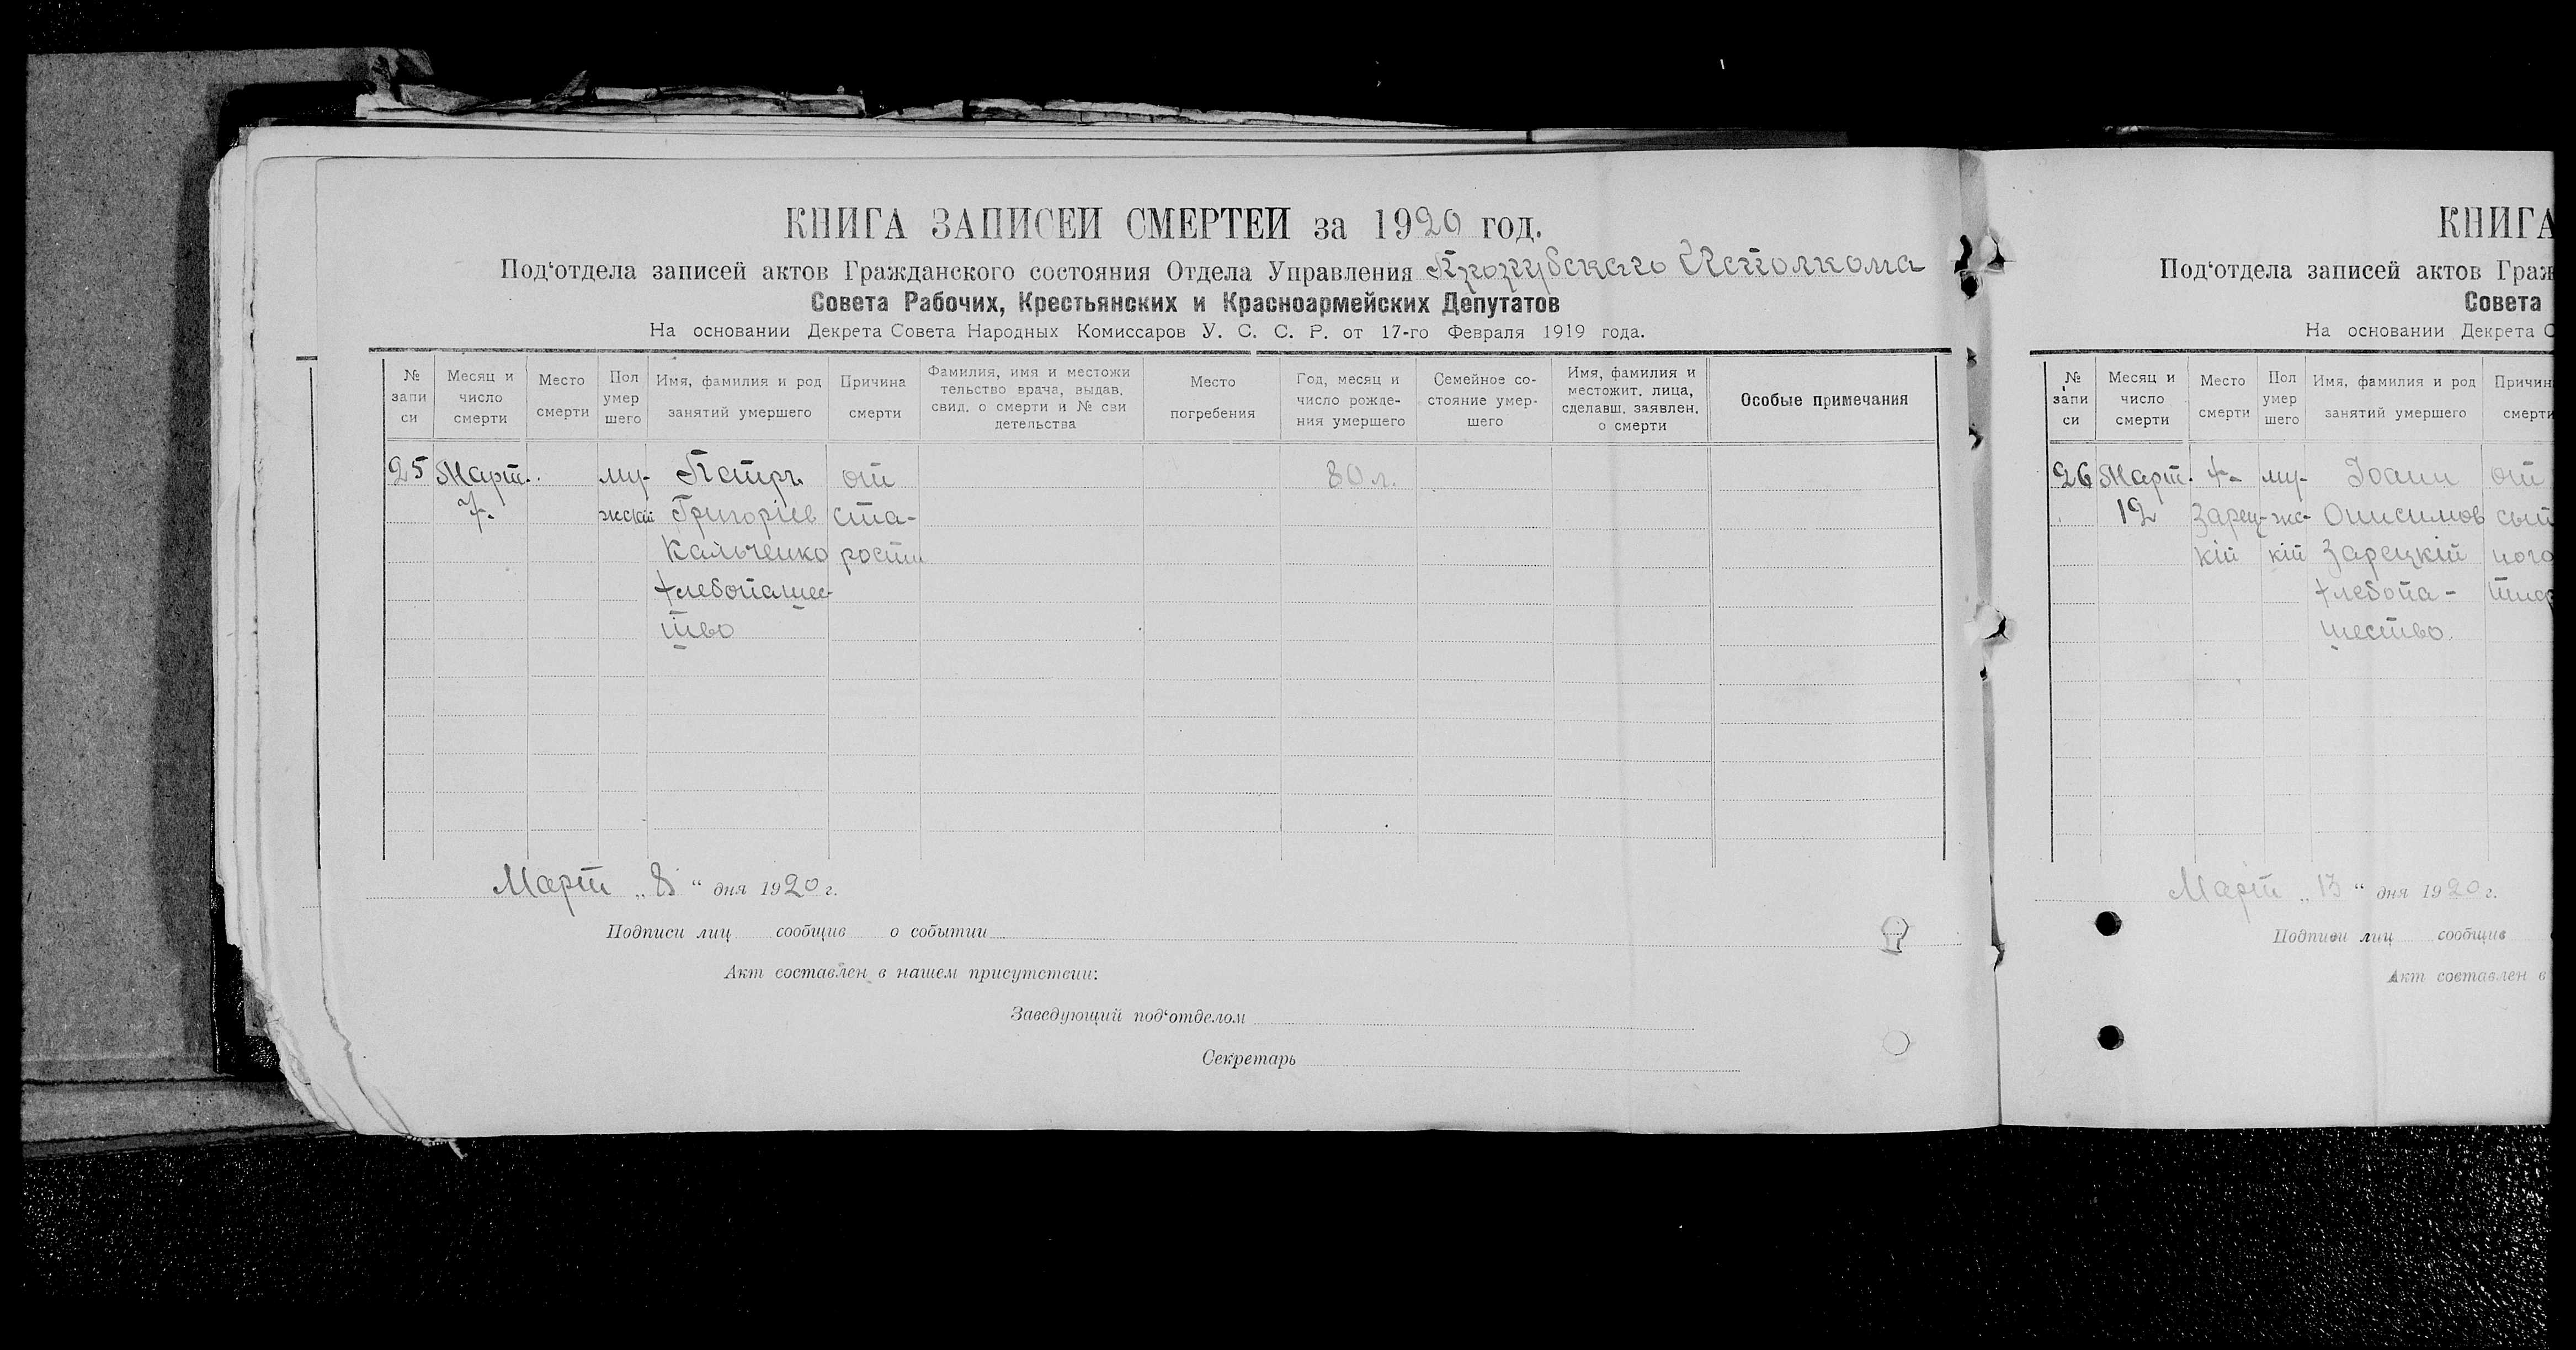 КНИГА ЗАПИСЕЙ СМЕРТЕЙ за 1920 год.
Под‘отдела записей актов Гражданского состояния Отдела Управления Исполкома
Совета Рабочих, Крестьянских и Красноармейских Депутатов
На основании Декрета Совета Народных Комиссаров У. С. С. Р. от 17-го Февраля 1919 года.
№ запи си
Месяц и число смерти
Место смерти
Пол умер шего
Имя, фамилия и род занятий умершего
Причина смерти
Фамилия, имя и местожи тельство врача, выдав. свид. о смерти и № сви детельства
Место погребения
Год, месяц и число рожде- ния умершего
Семейное со- стояние умер- шего
Имя, фамилия и местожит. лица, сделавш. заявлен. о смерти
Особые примечания
25 Март. му- Петръ от 80 л.
7. жскій Григоріев ста-
Кальченко рости
хлебопашес-
тво
Март „ 8 “ дня 1920 г.
Подписи лиц сообщив о событии
Акт составлен в нашем присутствии:
Заведующий под‘отделом
Секретарь
КНИГА
Под‘отдела записей актов Граж
Совета
На основании Декрета С
№ запи си
Месяц и число смерти
Место смерти
Пол умер шего
Имя, фамилия и род занятий умершего
Причин смерти
26 Март. х. му- Іоанн от
12 Зарец- жс- Онисимов сып
кій кій Зарецкій ного
хлебопа- тиф
шество.
Март „ 13 “ дня 1920 г.
Подписи лиц сообщив
Акт составлен в